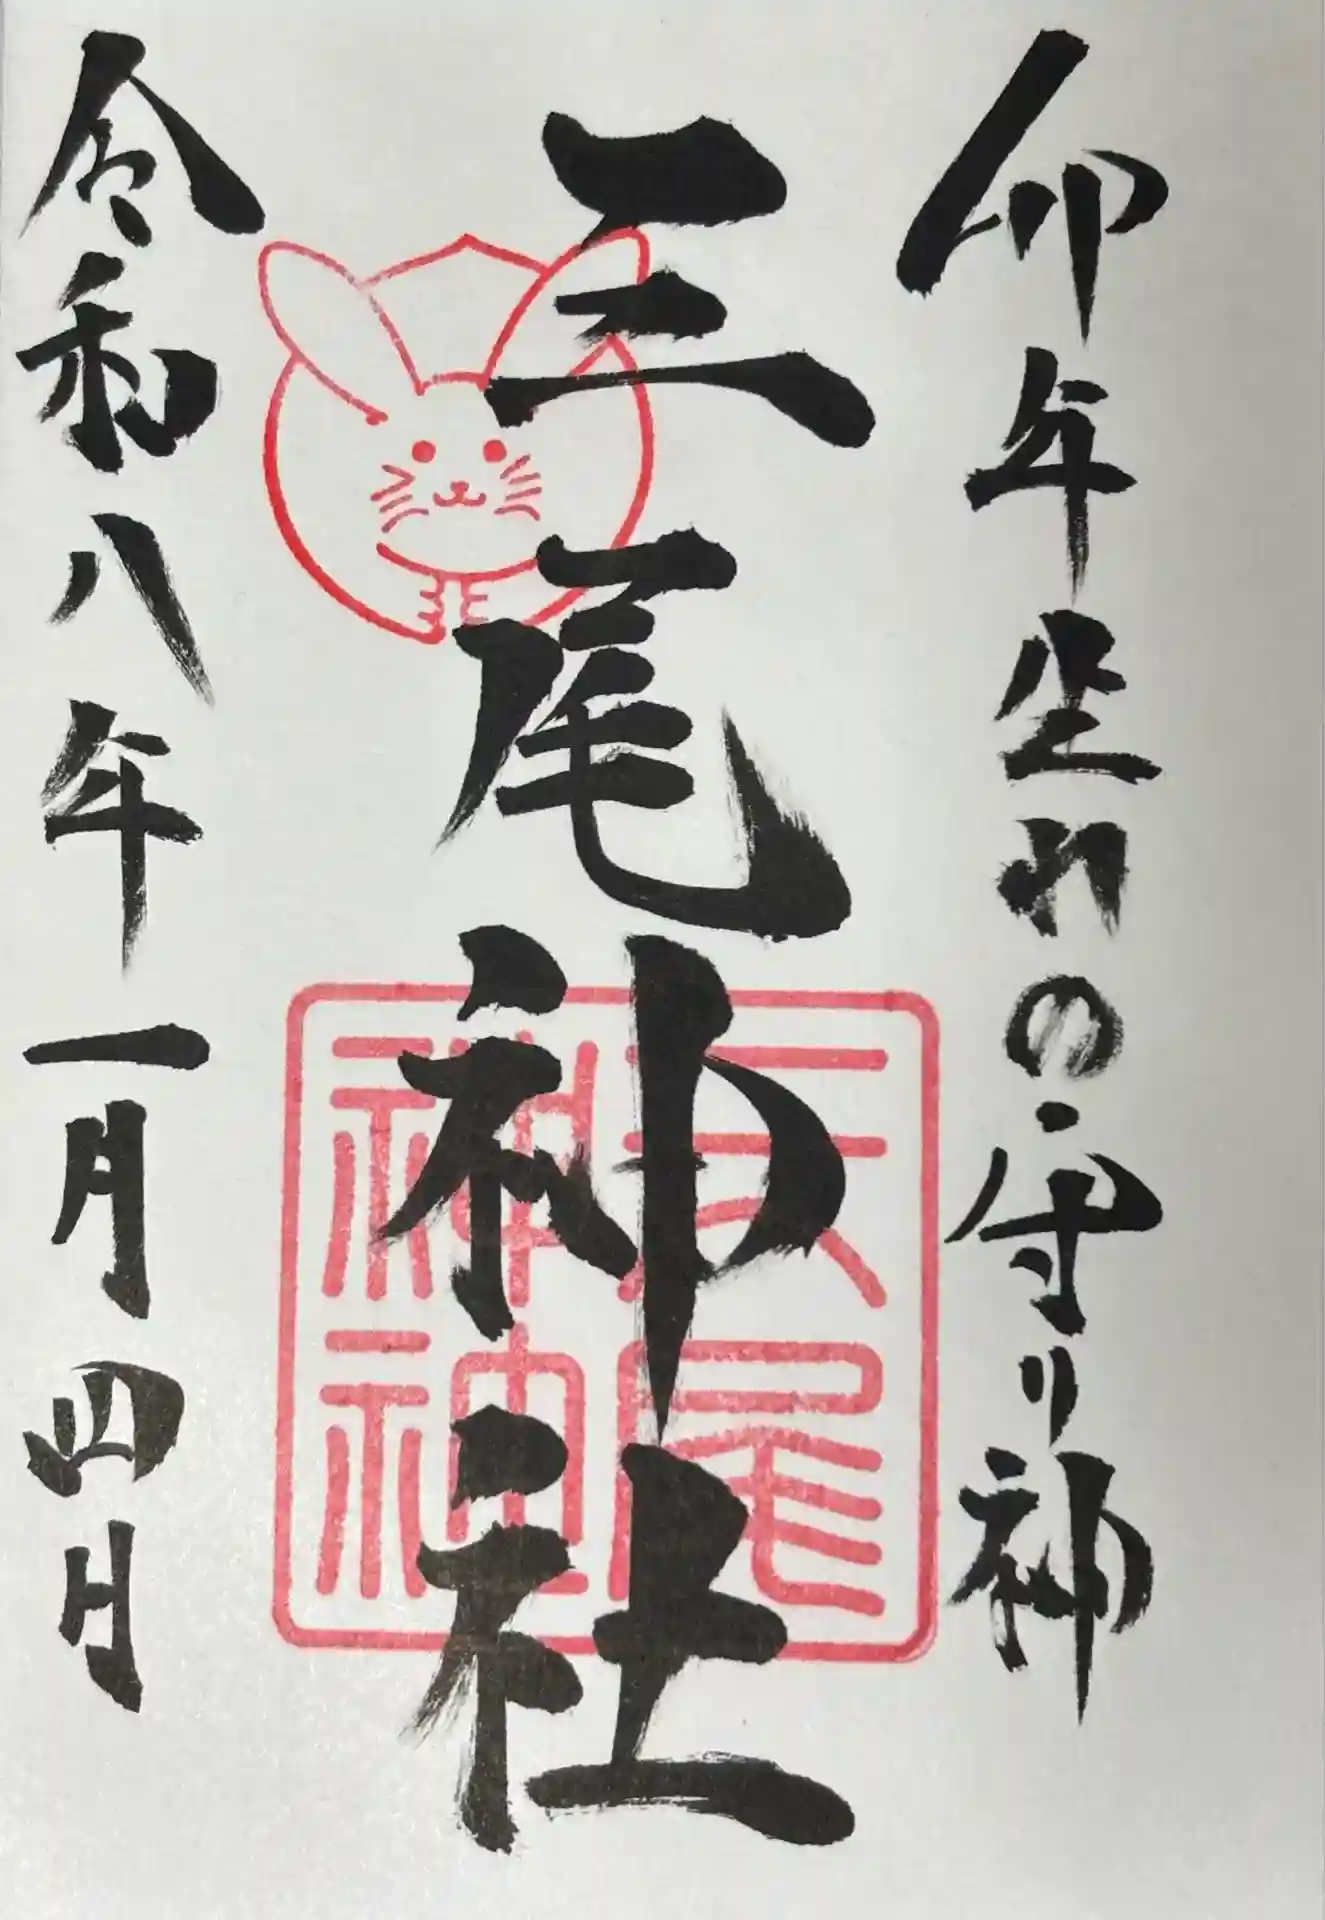 卯年生れの守り神
三尾神社
令和八年一月四日